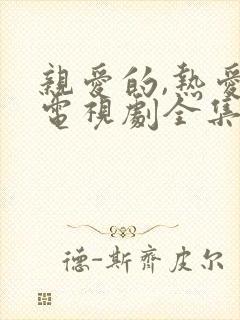 親愛的,熱愛
電視劇全集
德-斯齊皮尔